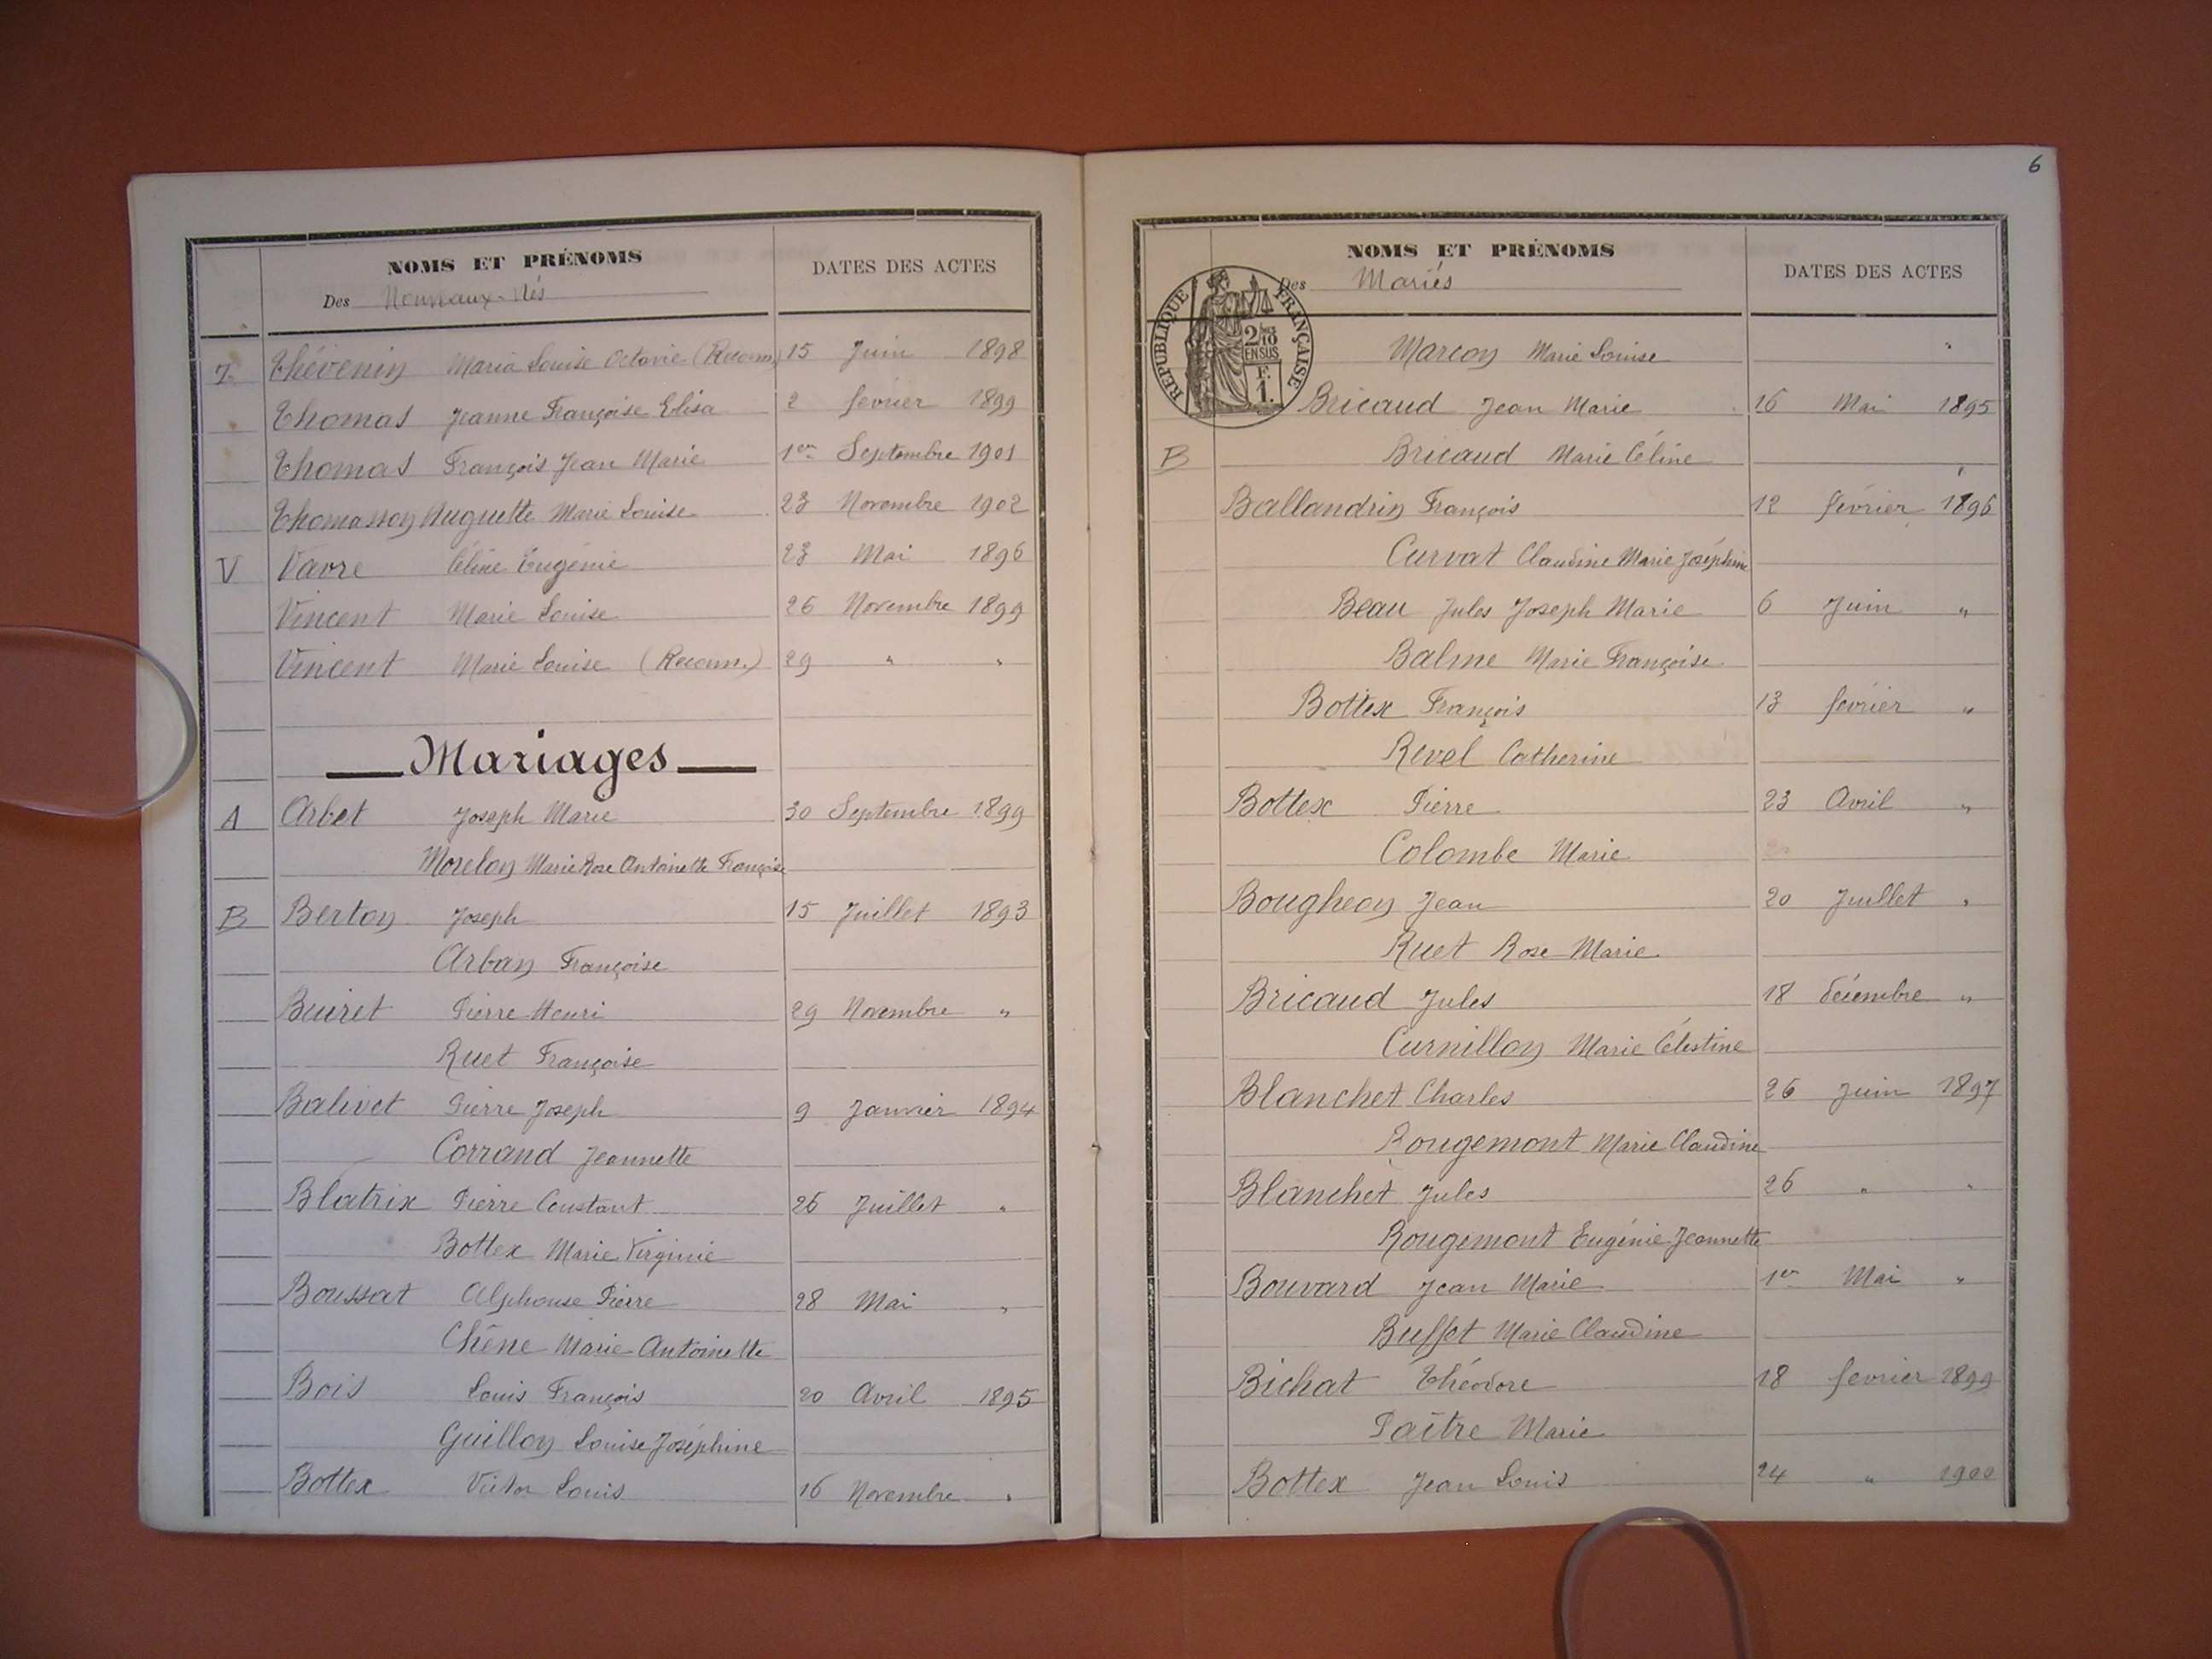 NOMS ET PRÉNOMS
DATES DES ACTES
Des Nouveaux-Nés
T Thévenin Maria Louise Octavie (Reconn.) 15 Juin 1898
Thomas Jeanne Françoise Elisa 2 février 1899
Thomas François Jean Marie 1er Septembre 1901
Thomasson Huguette Marie Louise 23 Novembre 1902
V Vavre Céline Eugénie 23 Mai 1896
Vincent Marie Louise 26 Novembre 1899
Vincent Marie Louise (Reconn.) 29 " "
Mariages
A Arbet Joseph Marie 30 Septembre 1899
Morelon Marie Rose Antoinette Françoise
B Berton Joseph 15 Juillet 1893
Arban Françoise
Buiret Pierre Henri 29 Novembre "
Ruet Françoise
Balivet Pierre Joseph 9 Janvier 1894
Corrand Jeannette
Blatrix Pierre Constant 26 Juillet "
Bottex Marie Virginie
Boussat Alphonse Pierre 28 Mai "
Chêne Marie Antoinette
Bois Louis François 20 Avril 1895
Guillon Louise Joséphine
Bottex Victor Louis 16 Novembre "
6
NOMS ET PRÉNOMS
DATES DES ACTES
Des Mariés
RÉPUBLIQUE FRANÇAISE
2/10 EN SUS
F. 1.
Marcon Marie Louise "
Bricaud Jean Marie 16 Mai 1895
B Bricaud Marie Céline
Ballandrin François 12 février 1896
Curvat Claudine Marie Joséphine
Beau Jules Joseph Marie 6 Juin "
Balme Marie Françoise
Bottex François 13 février "
Revel Catherine
Bottex Pierre 23 Avril "
Colombe Marie
Bougheon Jean 20 Juillet "
Ruet Rose Marie
Bricaud Jules 18 décembre "
Curnillon Marie Célestine
Blanchet Charles 26 Juin 1897
Rougemont Marie Claudine
Blanchet Jules 26 " "
Rougemont Eugénie Jeannette
Bouvard Jean Marie 1er Mai "
Buffet Marie Claudine
Bichat Théodore 18 février 1899
Paître Marie
Bottex Jean Louis 24 " 1900